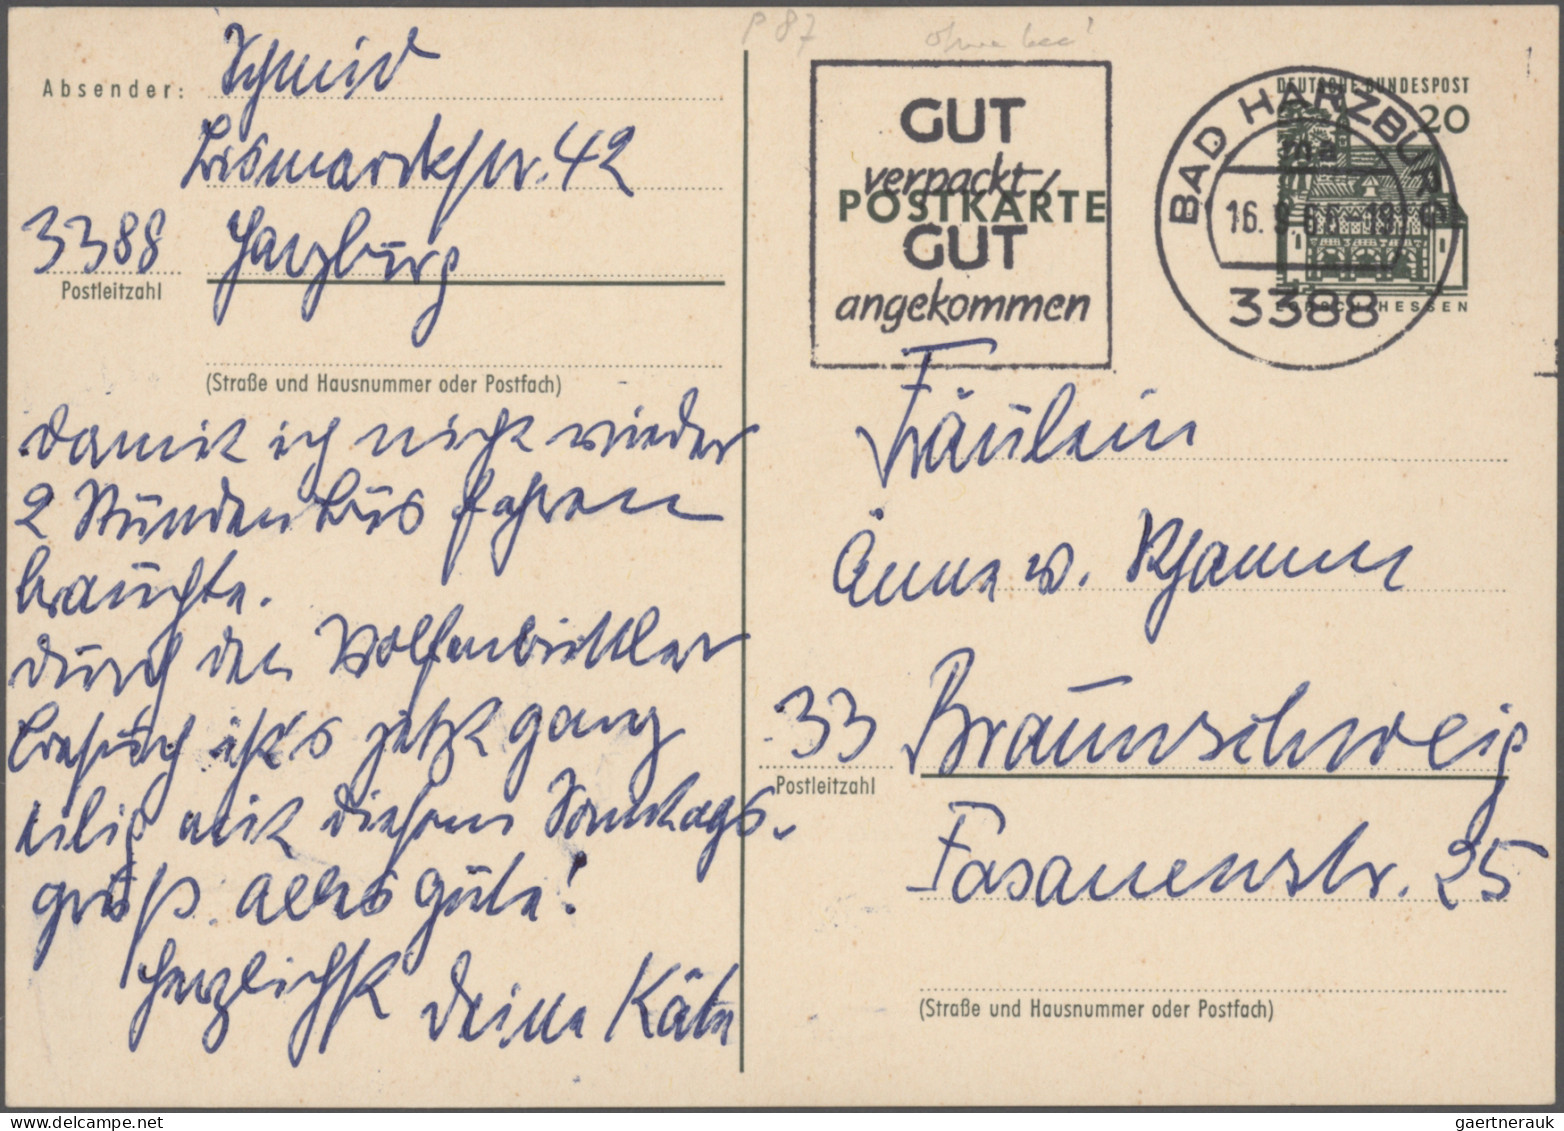 P 87
Absender: Schmid
Bismarckstr. 42
3388 Harzburg
Postleitzahl
(Straße und Hausnummer oder Postfach)
damit ich nicht wieder
2 Stunden Bus fahren
brauchte.
Durch den Wolfenbüttler
Besuch ist's jetzt ganz
eilig mit diesem Sonntags-
gruß. Alles Gute!
Herzlichst Deine Käte
GUT
verpackt/
POSTKARTE
GUT
angekommen
DEUTSCHE BUNDESPOST
20
BAD HARZBURG
16. 9. 66-18
3388
LORSCH/HESSEN
Fräulein
Änne v.
33 Braunschweig
Postleitzahl
Fasanenstr. 25
(Straße und Hausnummer oder Postfach)
gaertnerauk